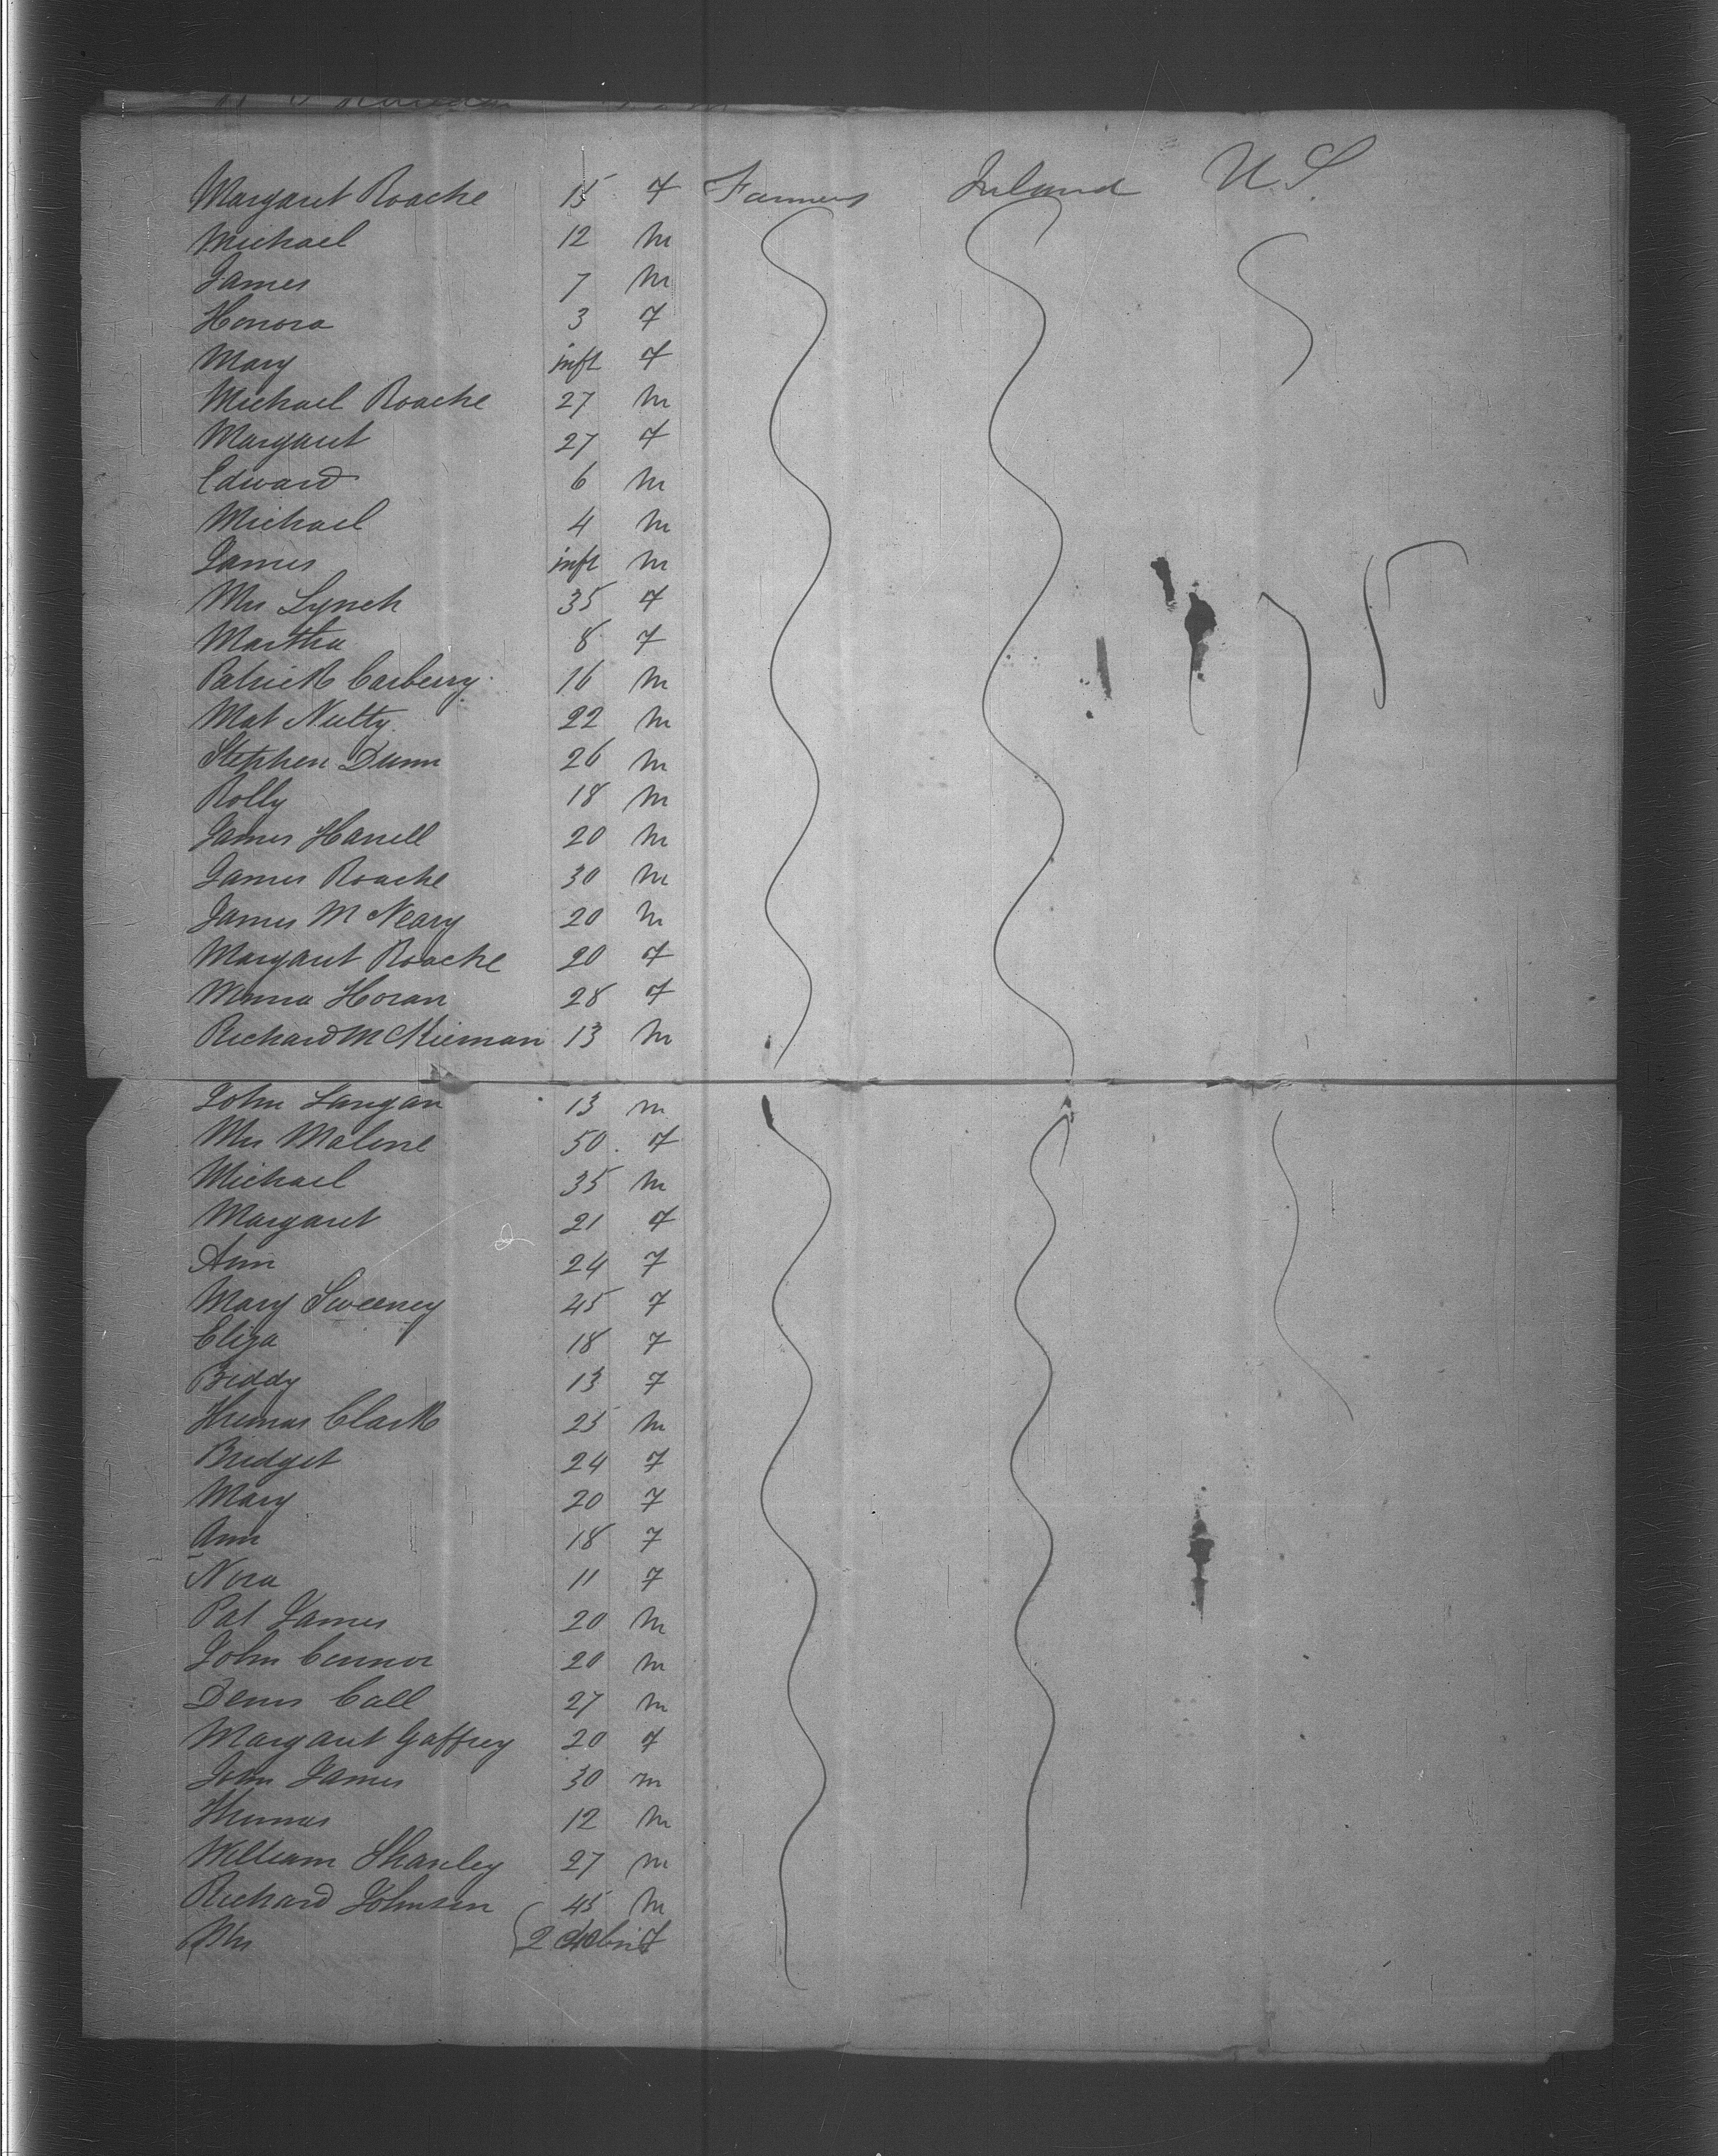 Margaret Roache 15 F Farmers Ireland U.S.
Michael 12 M
James 7 M
Honora 3 F
Mary inft F
Michael Roache 27 M
Margaret 27 F
Edward 6 M
Michael 4 M
James inft M
Mrs Lynch 35 F
Martha 8 F
Patrick Carberry 16 M
Mat Nulty 22 M
Stephen Dunn 26 M
Rolly 18 M
James Harrell 20 M
James Roache 30 M
James McNeary 20 M
Margaret Roache 20 F
Horan 28 F
Richard McKiernan 13 M
John Langan 13 M
Mrs Malone 50 F
Michael 35 M
Margaret 21 F
Ann 24 F
Mary Sweeney 45 F
Eliza 18 F
Biddy 13 F
Thomas Clark 25 M
Bridget 24 F
Mary 20 F
Ann 18 F
Nora 11 F
Pat James 20 M
John Connor 20 M
Denis Call 27 M
Margaret Gaffney 20 F
John James 30 M
Thomas 12 M
William Shanley 27 M
Richard Johnson 45 M
Mrs 40 F